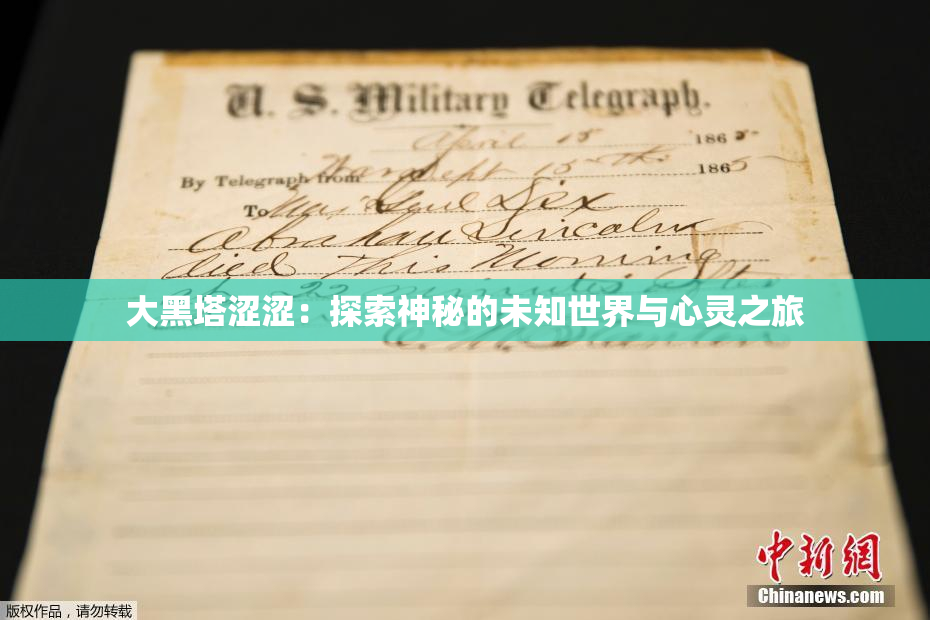 U. S. Military Telegraph.
April 15 1865
By Telegraph from War Dept 15th 1865
To Maj Genl Dix
Abraham Lincoln
died This Morning
22 minutes after
大黑塔涩涩：探索神秘的未知世界与心灵之旅
中新网
Chinanews.com
版权作品，请勿转载